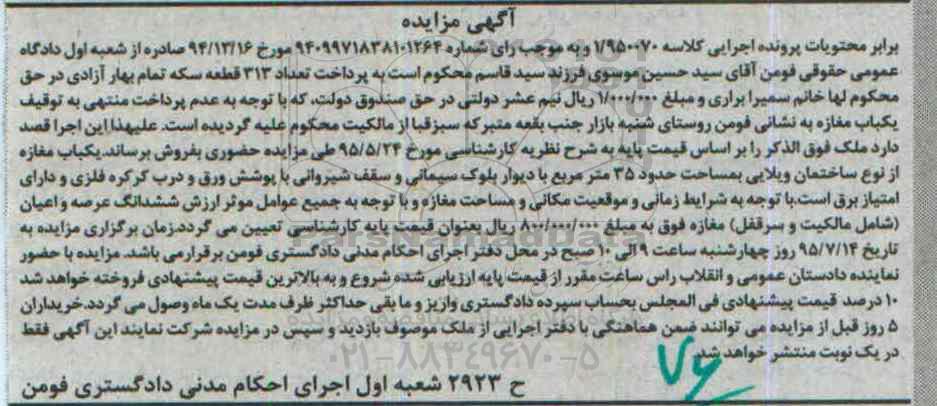 آگهی مزایده
برابر محتویات پرونده اجرایی کلاسه ۱/۹۵۰۰۷۰ و به موجب رای شماره ۹۴۰۹۹۷۱۸۳۸۱۰۱۲۶۴ مورخ ۹۴/۱۲/۱۶ صادره از شعبه اول دادگاه
عمومی حقوقی فومن آقای سید حسین موسوی فرزند سید قاسم محکوم است به پرداخت تعداد ۳۱۳ قطعه سکه تمام بهار آزادی در حق
محکوم لها خانم سمیرا براری و مبلغ ۱/۰۰۰/۰۰۰ ریال نیم عشر دولتی در حق صندوق دولت، که با توجه به عدم پرداخت منتهی به توقیف
یکباب مغازه به نشانی فومن روستای شنبه بازار جنب بقعه متبرکه سبزقبا از مالکیت محکوم علیه گردیده است. علیهذا این اجرا قصد
دارد ملک فوق الذکر را بر اساس قیمت پایه به شرح نظریه کارشناسی مورخ ۹۵/۵/۲۴ طی مزایده حضوری بفروش برساند.یکباب مغازه
از نوع ساختمان ویلایی بمساحت حدود ۳۵ متر مربع با دیوار بلوک سیمانی و سقف شیروانی با پوشش ورق و درب کرکره فلزی و دارای
امتیاز برق است.با توجه به شرایط زمانی و موقعیت مکانی و مساحت مغازه و با توجه به جمیع عوامل موثر ارزش ششدانگ عرصه و اعیان
(شامل مالکیت و سرقفل) مغازه فوق به مبلغ ۸۰۰/۰۰۰/۰۰۰ ریال بعنوان قیمت پایه کارشناسی تعیین می گردد.زمان برگزاری مزایده به
تاریخ ۹۵/۷/۱۴ روز چهارشنبه ساعت ۹ الی ۱۰ صبح در محل دفتر اجرای احکام مدنی دادگستری فومن برقرار می باشد. مزایده با حضور
نماینده دادستان عمومی و انقلاب راس ساعت مقرر از قیمت پایه ارزیابی شده شروع و به بالاترین قیمت پیشنهادی فروخته خواهد شد
۱۰ درصد قیمت پیشنهادی فی المجلس بحساب سپرده دادگستری واریز و ما بقی حداکثر ظرف مدت یک ماه وصول می گردد.خریداران
۵ روز قبل از مزایده می توانند ضمن هماهنگی با دفتر اجرایی از ملک موصوف بازدید و سپس در مزایده شرکت نمایند این آگهی فقط
در یک نوبت منتشر خواهد شد.
۰۲۱-۸۸۳۴۹۶۷۰-۵
ح ۲۹۲۳ شعبه اول اجرای احکام مدنی دادگستری فومن